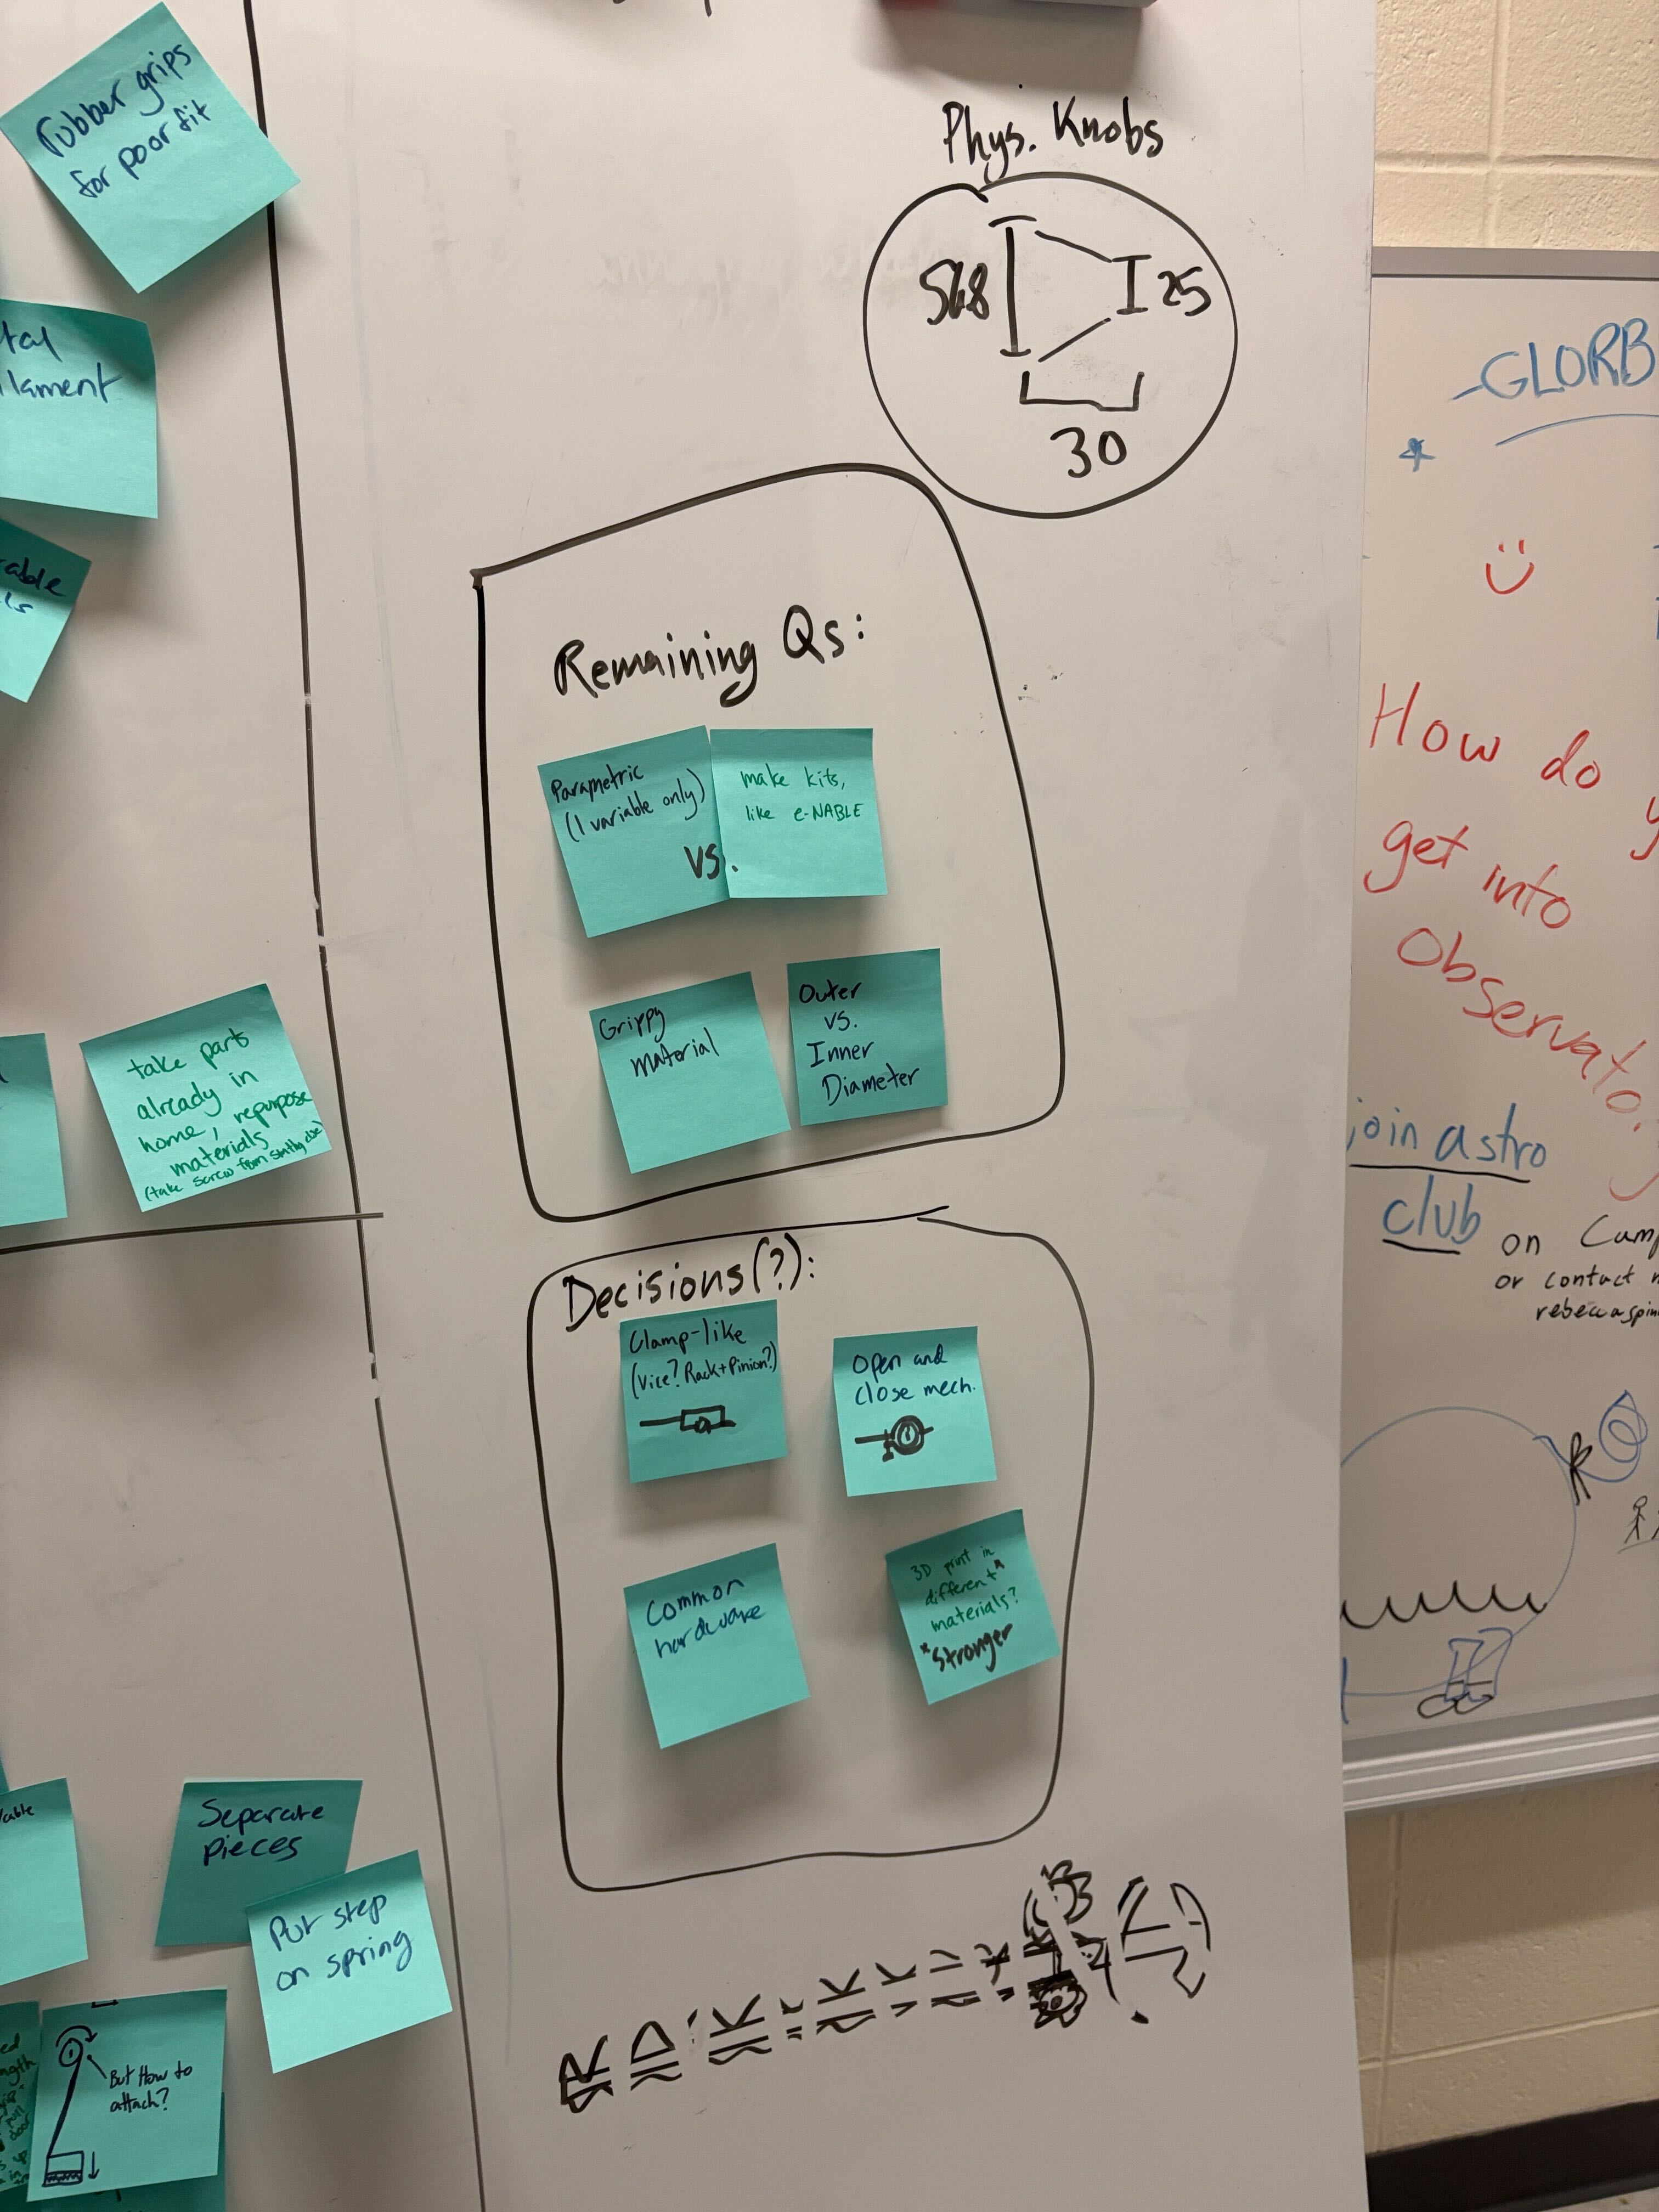 rubber grips
for poor fit
tal
ilament
able
ls
take parts
already in
home, repurpose
materials
(take screw from
Separate
pieces
Put step
on spring
But How to
attach?
Phys. Knobs
25
30
Remaining Qs:
Parametric
(1 variable only)
vs.
make kits,
like e-NABLE
Grippy
material
Outer
vs.
Inner
Diameter
Decisions(?):
Clamp-like
(Vice? Rack+Pinion?)
Open and
close mech.
Common
hardware
3D print in
different*
materials?
*Stronger
GLORB
How do y
get into
Observato
join astro
club on Camp
or contact
rebeccaspin